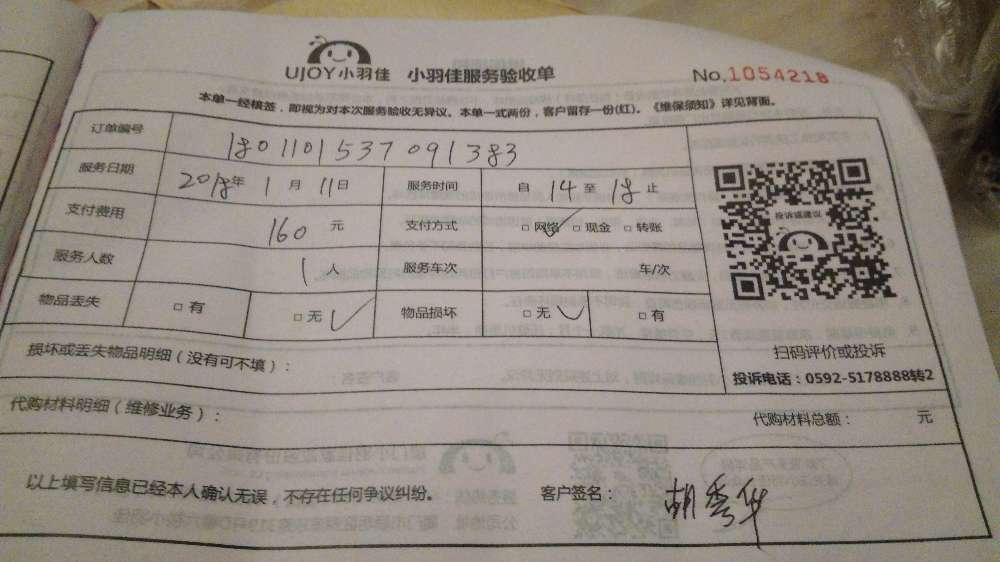 UJOY小羽佳 小羽佳服务验收单 No.1054218
本单一经核签，即视为对本次服务验收无异议。本单一式两份，客户留存一份(红)。《维保须知》详见背面。
订单编号 1801101537091383
服务日期 2018年 1月 11日 服务时间 自 14 至 18 止
支付费用 160 元 支付方式 □ 网络 □ 现金 □ 转账
服务人数 1 人 服务车次 车/次
物品丢失 □ 有 □ 无 ✓ 物品损坏 □ 无 ✓ □ 有
投诉或建议
扫码评价或投诉
投诉电话：0592-5178888转2
损坏或丢失物品明细（没有可不填）：
代购材料明细（维修业务）： 代购材料总额： 元
以上填写信息已经本人确认无误，不存在任何争议纠纷。 客户签名： 胡秀华